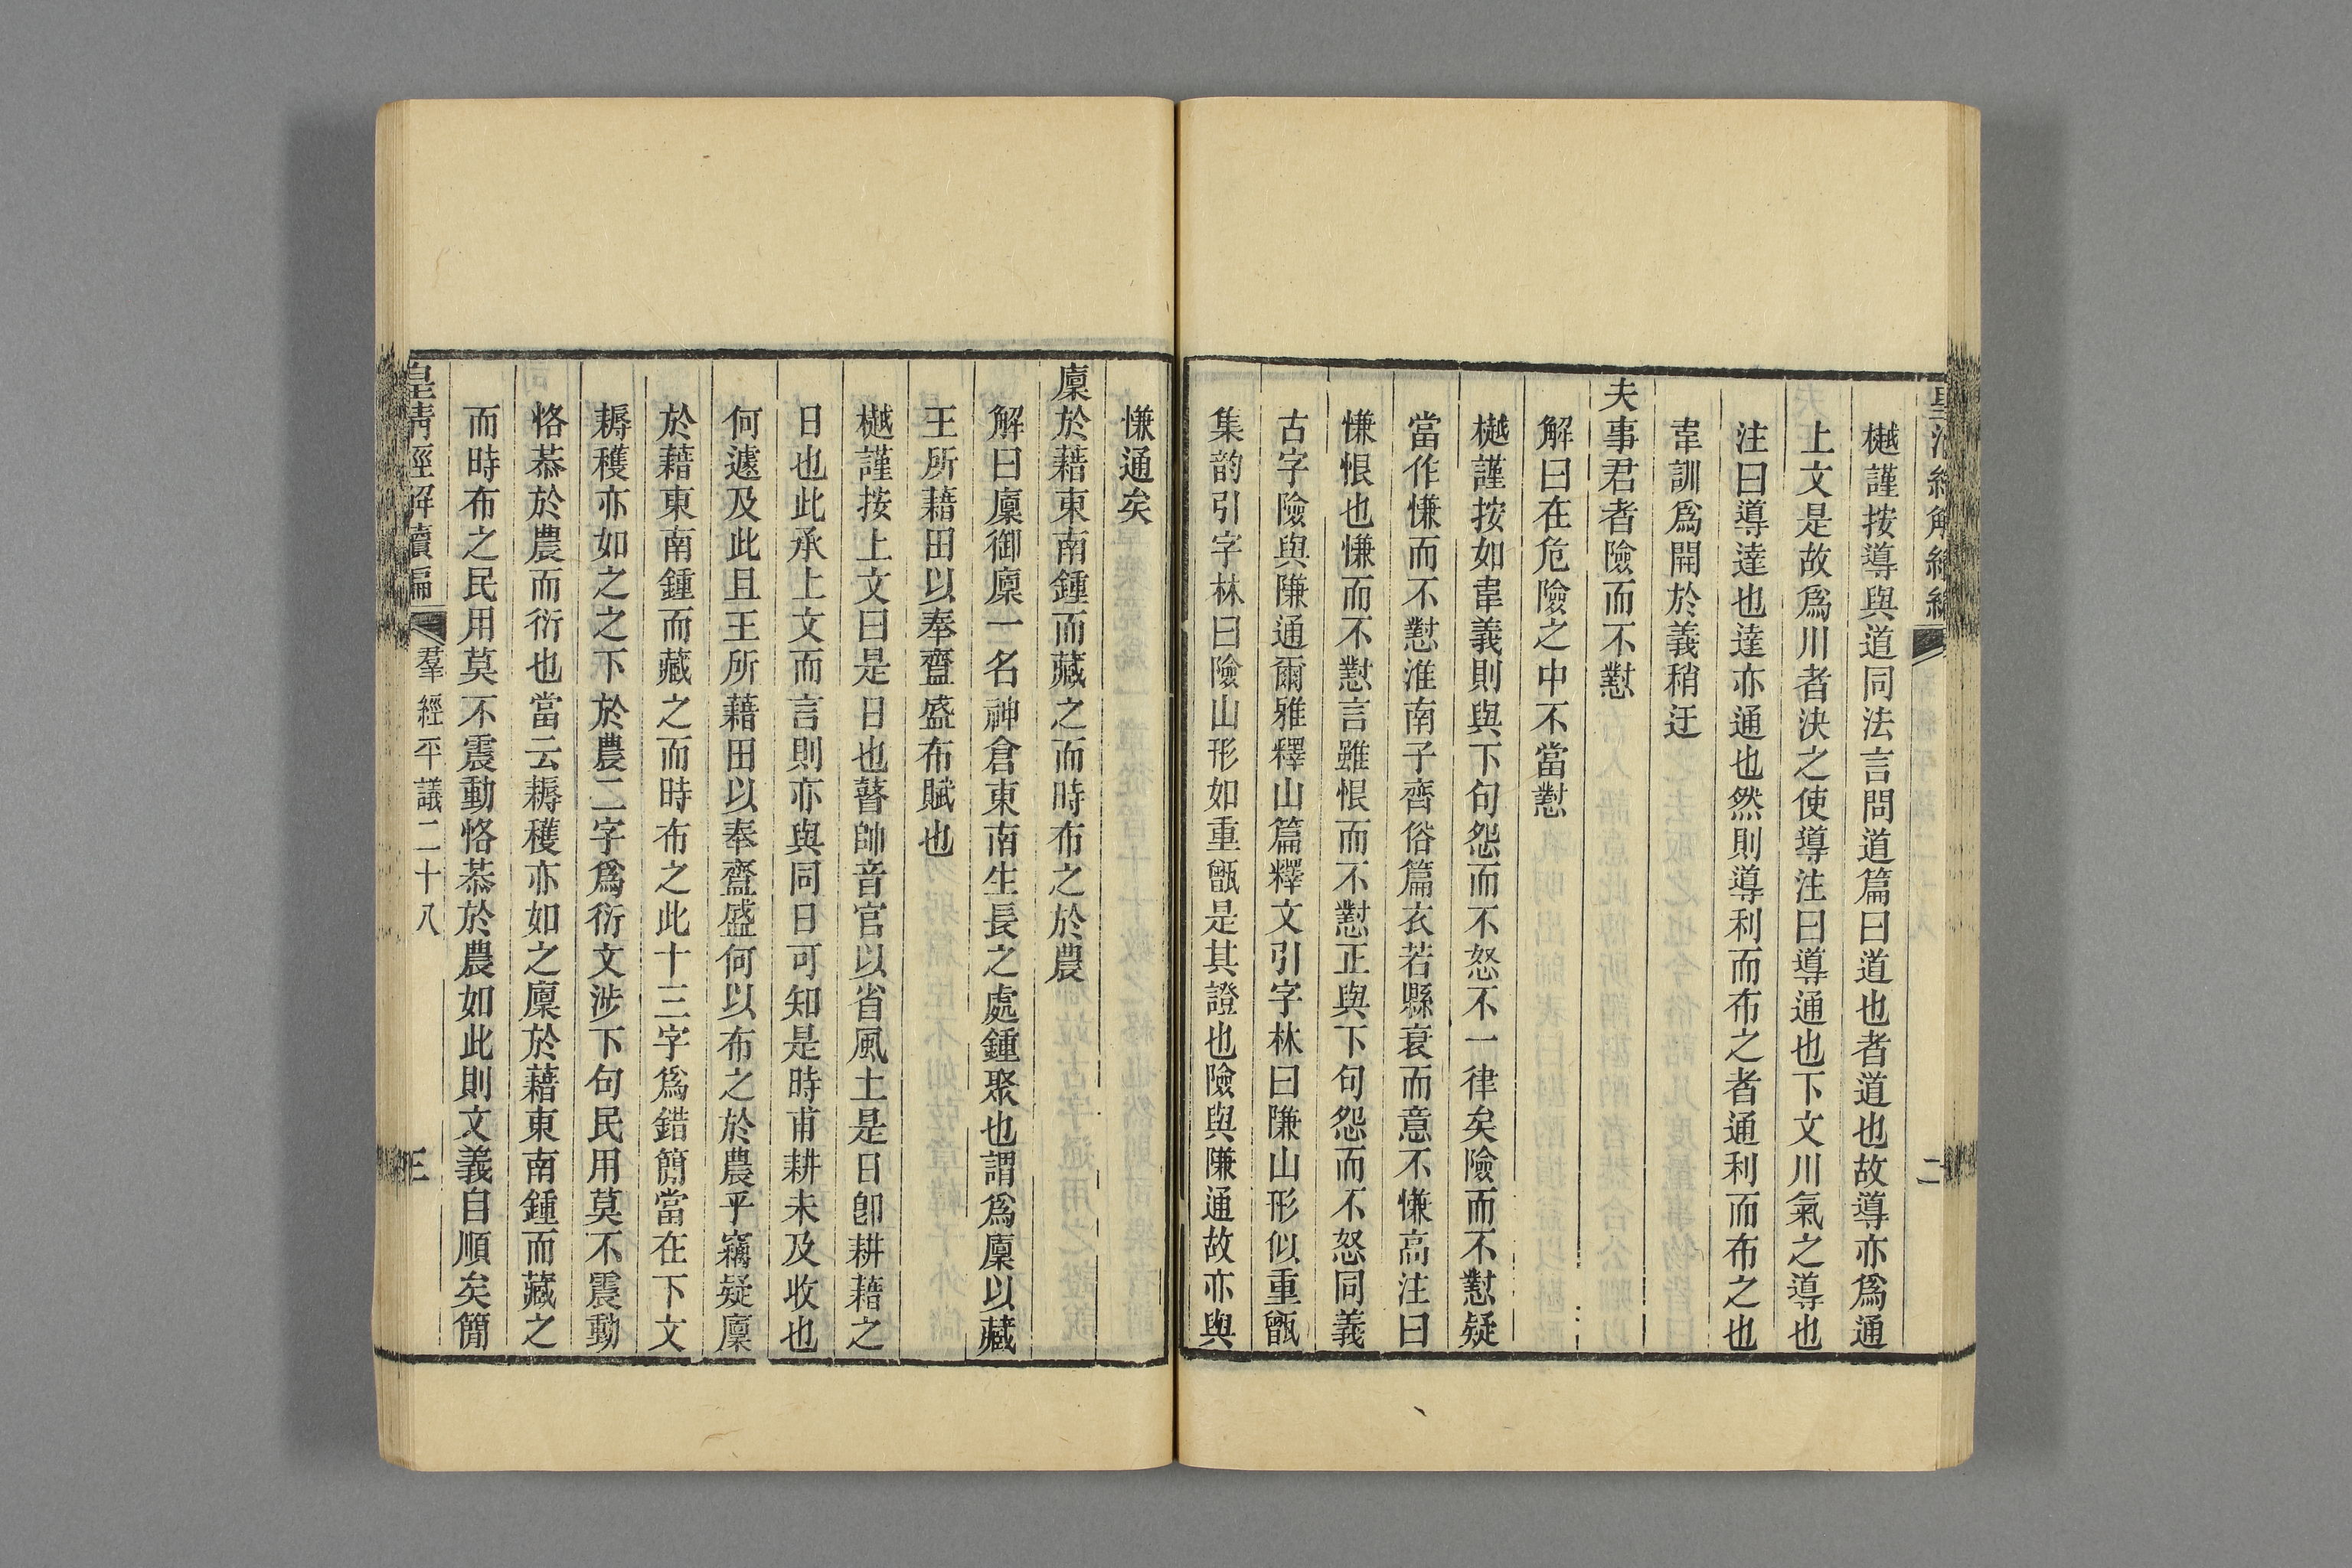 樾謹按導與道同法言問道篇曰道也者道也故導亦爲通
上文是故爲川者決之使導注曰導通也下文川氣之導也
注曰導達也達亦通也然則導利而布之者通利而布之也
韋訓爲開於義稍迂
夫事君者險而不懟
解曰在危險之中不當懟
樾謹按如韋義則與下句怨而不怒不一律矣險而不懟疑
當作慊而不懟淮南子齊俗篇衣若縣衰而意不慊高注曰
慊恨也慊而不懟言雖恨而不懟正與下句怨而不怒同義
古字險與隒通爾雅釋山篇釋文引字林曰隒山形似重甑
集韵引字林曰險山形如重甑是其證也險與隒通故亦與
慊通矣
廩於藉東南鍾而藏之而時布之於農
解曰廩御廩一名神倉東南生長之處鍾聚也謂爲廩以藏
王所藉田以奉齍盛布賦也
樾謹按上文曰是日也瞽帥音官以省風土是日卽耕藉之
日也此承上文而言則亦與同日可知是時甫耕未及收也
何遽及此且王所藉田以奉齍盛何以布之於農乎竊疑廩
於藉東南鍾而藏之而時布之此十三字爲錯簡當在下文
耨穫亦如之之下於農二字爲衍文涉下句民用莫不震動
恪恭於農而衍也當云耨穫亦如之廩於藉東南鍾而藏之
而時布之民用莫不震動恪恭於農如此則文義自順矣簡
皇清經解續編
羣經平議二十八
二